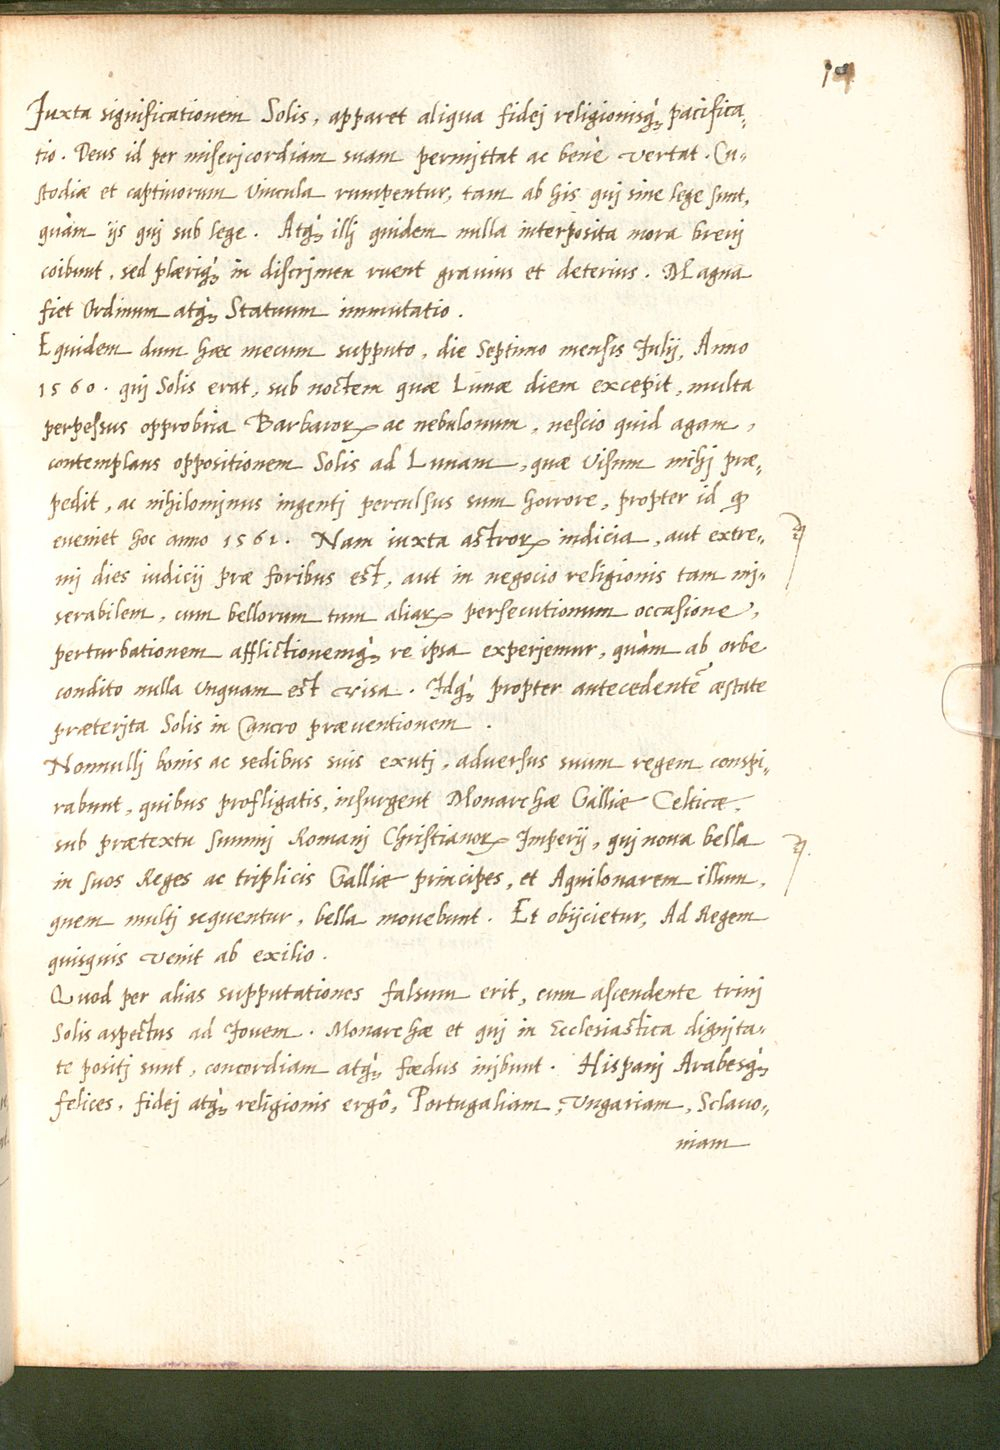 14
Iuxta significationem Solis, apparet aliqua fidej religionisq́ꝫ pacifica,
tio. Deus id per miserjcordiam suam permjttat ac benè vertat. Cu-
stodiæ et captiuorum Vincula rumpentur, tam ab his quj sine lege sunt,
quàm ijs quj sub lege. Atq́ꝫ illj quidem nulla interposita mora breuj
coibunt, sed plæriq́ꝫ in discrjmen ruent grauius et deterius. Magna
fiet Ordinum atq́ꝫ Statuum immutatio.
Equidem dum hæc mecum supputo, die Septimo mensis Iulij, Anno
1560. quj Solis erat, sub noctem quæ Lunæ diem excepit, multa
perpessus opprobria Barbaroꝝ ac nebulonum, nescio quid agam,
contemplans oppositionem Solis ad Lunam, quæ Visum mihj præ,
pedit, ac nihilominus ingentj perculsus sum horrore, propter id ꝙ
eueniet hoc anno 1561. Nam iuxta astroꝝ indicia, aut extre-
mj dies iudicij præ foribus est, aut in negocio religionis tam mj-
serabilem, cum bellorum tum aliaꝝ persecutionum occasione,
perturbationem afflictionemq́ꝫ re ipsa experjemur, quàm ab orbe
condito nulla Vnquam est visa. Idq́ꝫ propter antecedentē æstate
præterjta Solis in Cancro præuentionem.
Nonnullj bonis ac sedibus suis exutj, aduersus suum regem conspi,
rabunt, quibus profligatis, insurgent Monarchæ Galliæ Celticæ,
sub prætextu summj Romanj Christianoꝝ Imperij, quj noua bella
in suos Reges ac triplicis Galliæ principes, et Aquilonarem illum,
quem multj sequentur, bella mouebunt. Et obijcietur, Ad Regem
quisquis venit ab exilio.
Quod per alias supputationes falsum erit, cum ascendente trinj
Solis aspectus ad Iouem. Monarchæ et quj in Ecclesiastica dignjta-
te positj sunt, concordiam atq́ꝫ fœdus injbunt. Hispanj Arabesq́ꝫ
felices, fidej atq́ꝫ religionis ergô, Portugaliam, Vngariam, Sclauo,
niam